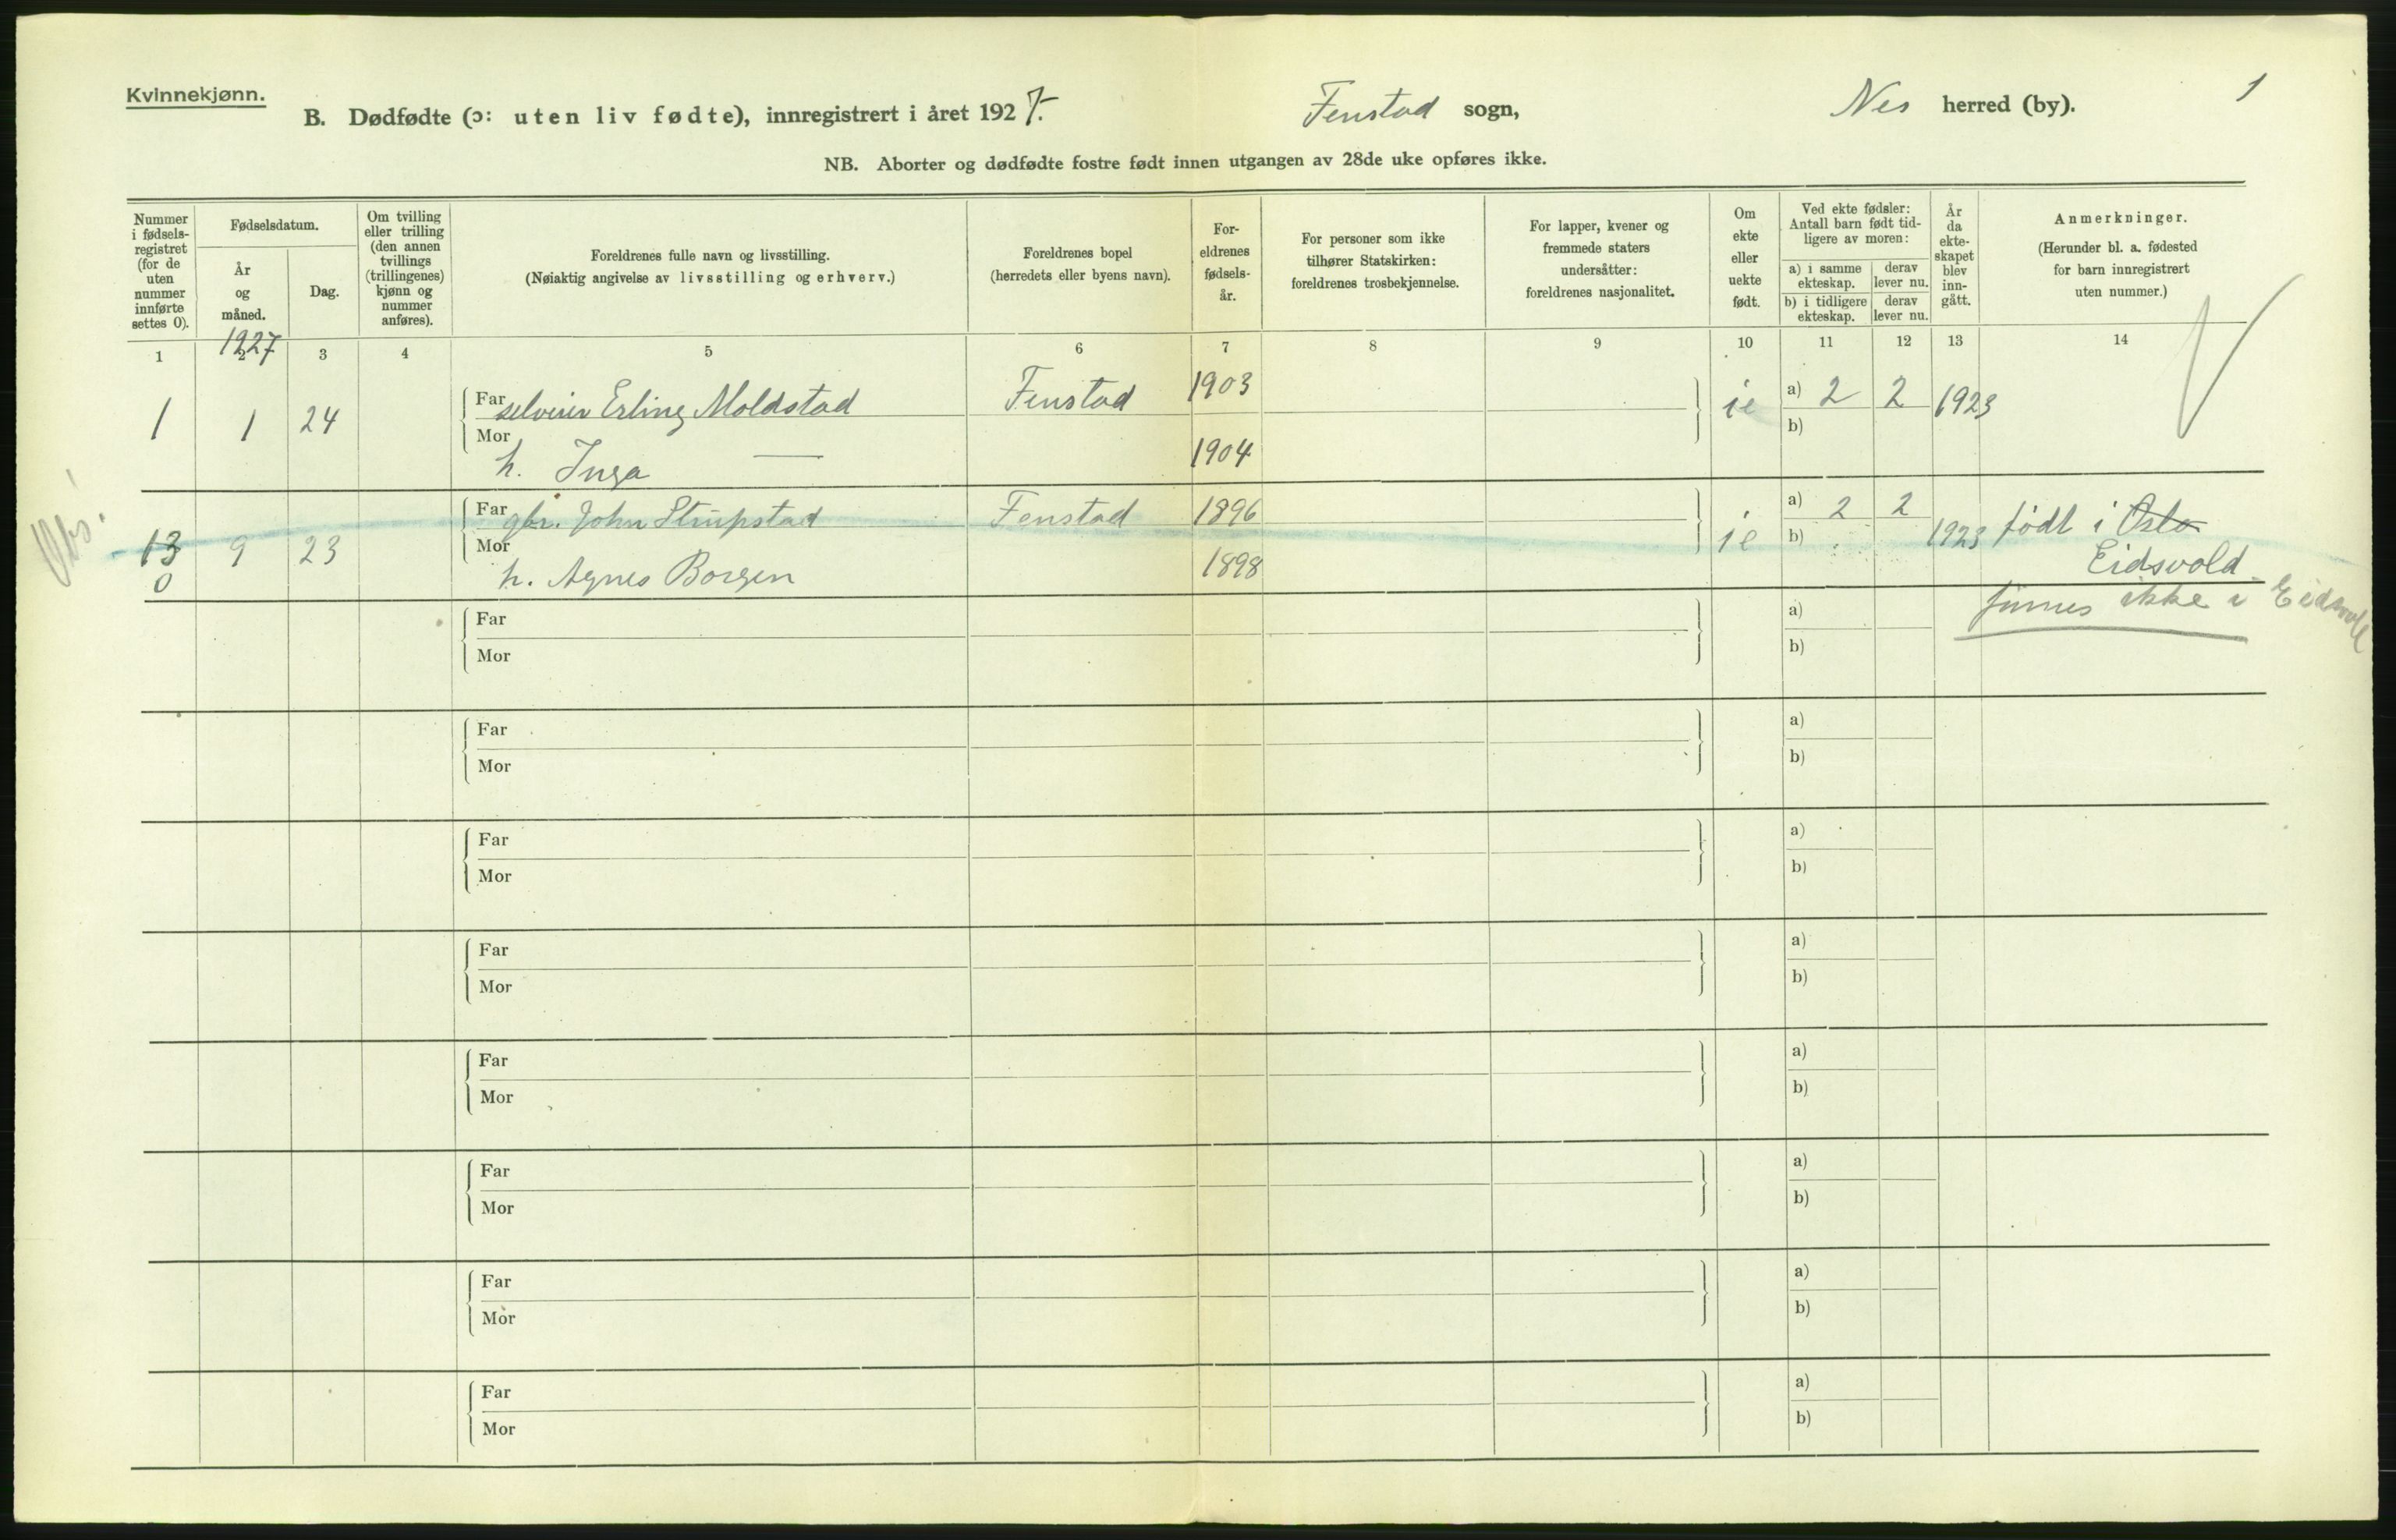 Kvinnekjønn.
B. Dødfødte (ɔ: uten liv fødte), innregistrert i året 1927.
Fenstad sogn,
Nes herred (by).
1
NB. Aborter og dødfødte fostre født innen utgangen av 28de uke opføres ikke.
Nummer
i fødsels-
registret
(for de
uten
nummer
innførte
settes 0).
Fødselsdatum.
År
og
måned.
Dag.
Om tvilling
eller trilling
(den annen
tvillings
(trillingenes)
kjønn og
nummer
anføres).
Foreldrenes fulle navn og livsstilling.
(Nøiaktig angivelse av livsstilling og erhverv.)
Foreldrenes bopel
(herredets eller byens navn).
For-
eldrenes
fødsels-
år.
For personer som ikke
tilhører Statskirken:
foreldrenes trosbekjennelse.
For lapper, kvener og
fremmede staters
undersåtter:
foreldrenes nasjonalitet.
Om
ekte
eller
uekte
født.
Ved ekte fødsler:
Antall barn født tid-
ligere av moren:
a) i samme
ekteskap.
derav
lever nu.
b) i tidligere
ekteskap.
derav
lever nu.
År
da
ekte-
skapet
blev
inn-
gått.
Anmerkninger.
(Herunder bl. a. fødested
for barn innregistrert
uten nummer.)
1 2 3 4 5 6 7 8 9 10 11 12 13 14
1927
1 1 24
Far selveier Erling Moldstad Fenstad 1903
ie a) 2 2 1923
Mor
h. Inga — 1904
b)
Obs!
13 9 23
0
Far gbr. John Strupstad Fenstad 1896
ie a) 2 2 1923 født i Oslo
Mor
h. Agnes Borgen 1898
b)
Eidsvold
finnes ikke i Eidsvoll
Far a)
Mor b)
Far a)
Mor b)
Far a)
Mor b)
Far a)
Mor b)
Far a)
Mor b)
Far a)
Mor b)
Far a)
Mor b)
Far a)
Mor b)